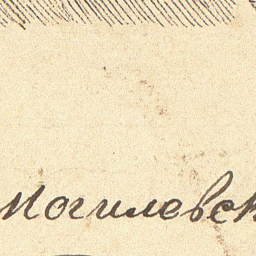 Могилевск